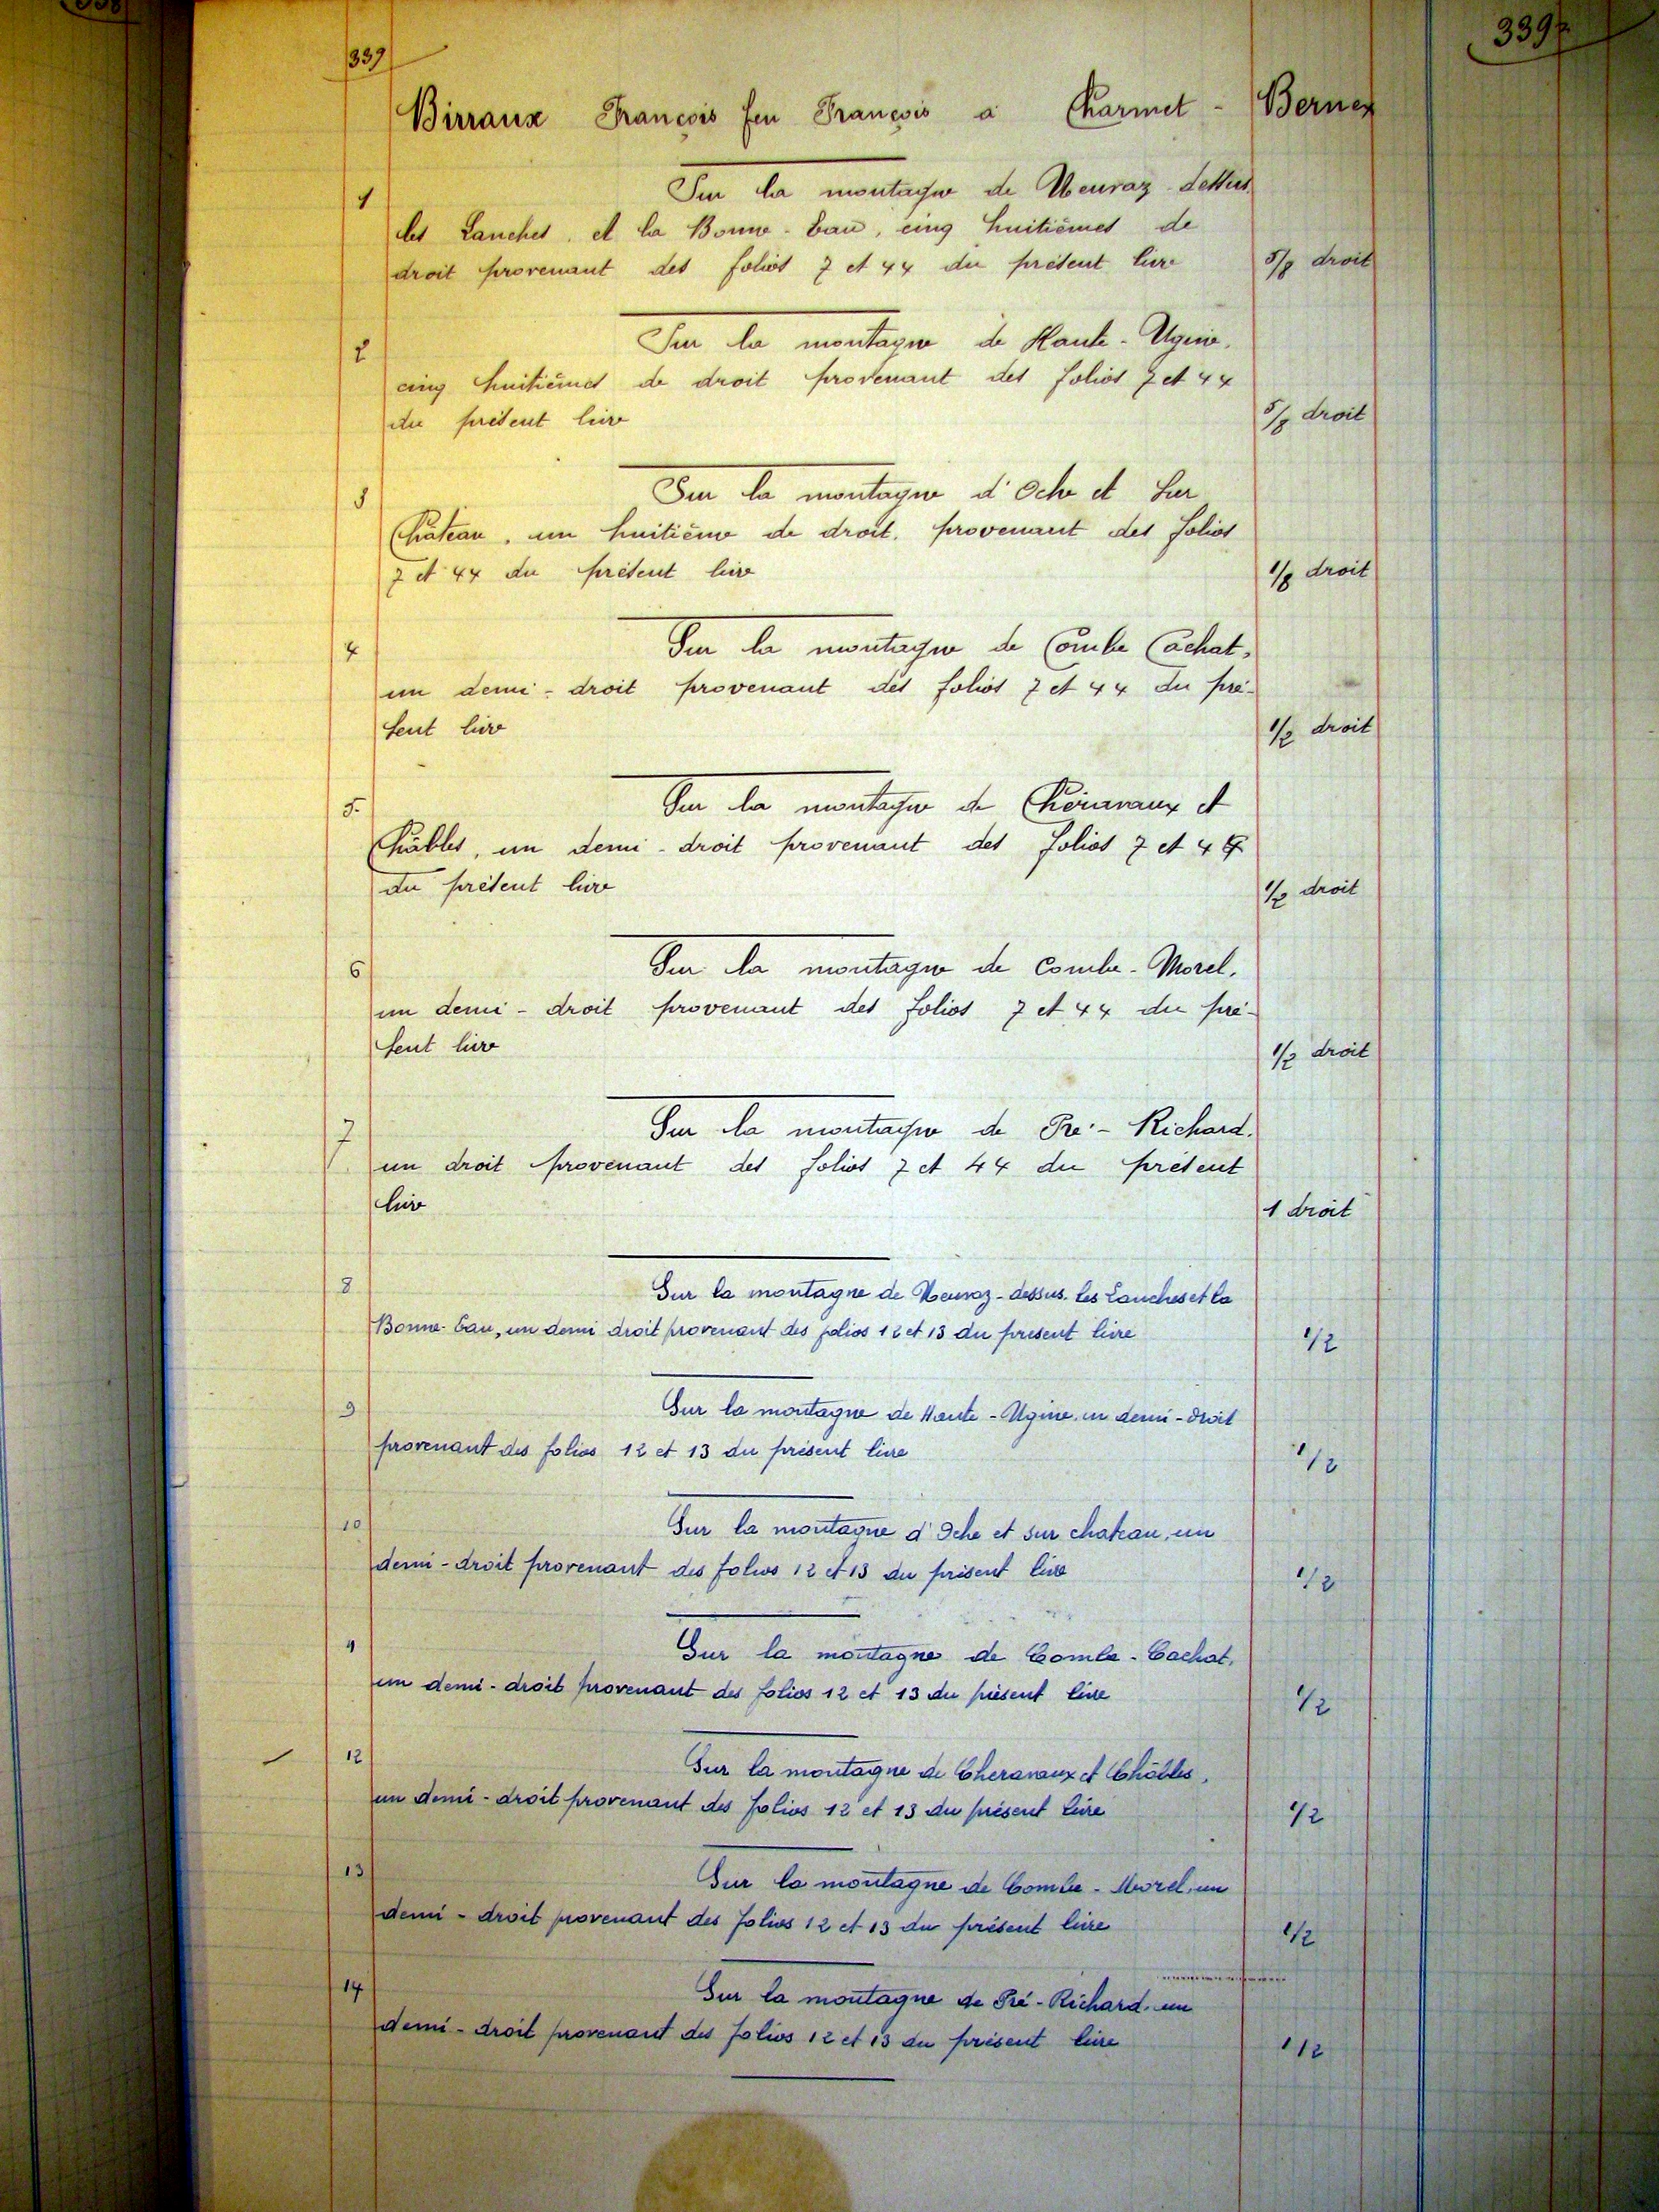 339
339
Birraux François feu François à Charmet - Bernex
1 Sur la montagne de Neuvaz-dessus,
les Lanches, et la Bonne-Eau, cinq huitièmes de
droit provenant des folios 7 et 44 du présent livre 5/8 droit
2 Sur la montagne de Haute-Ugine,
cinq huitièmes de droit provenant des folios 7 et 44
du présent livre 5/8 droit
3 Sur la montagne d'Oche et Sur
Château, un huitième de droit, provenant des folios
7 et 44 du présent livre 1/8 droit
4 Sur la montagne de Combe Cachat,
un demi-droit provenant des folios 7 et 44 du pré-
sent livre 1/2 droit
5. Sur la montagne de Chéravaux et
Châbles, un demi-droit provenant des folios 7 et 44
du présent livre 1/2 droit
6 Sur la montagne de Combe-Morel,
un demi-droit provenant des folios 7 et 44 du pré-
sent livre 1/2 droit
7 Sur la montagne de Pré-Richard,
un droit provenant des folios 7 et 44 du présent
livre 1 droit
8 Sur la montagne de Neuvaz-dessus, les Lanches et la
Bonne-Eau, un demi droit provenant des folios 12 et 13 du présent livre 1/2
9 Sur la montagne de Haute-Ugine, un demi-droit
provenant des folios 12 et 13 du présent livre 1/2
10 Sur la montagne d'Oche et sur chateau, un
demi-droit provenant des folios 12 et 13 du présent livre 1/2
11 Sur la montagne de Combe-Cachat,
un demi-droit provenant des folios 12 et 13 du présent livre 1/2
12 Sur la montagne de Cheravaux et Châbles,
un demi-droit provenant des folios 12 et 13 du présent livre 1/2
13 Sur la montagne de Combe-Morel, un
demi-droit provenant des folios 12 et 13 du présent livre 1/2
14 Sur la montagne de Pré-Richard, un
demi-droit provenant des folios 12 et 13 du présent livre 1/2